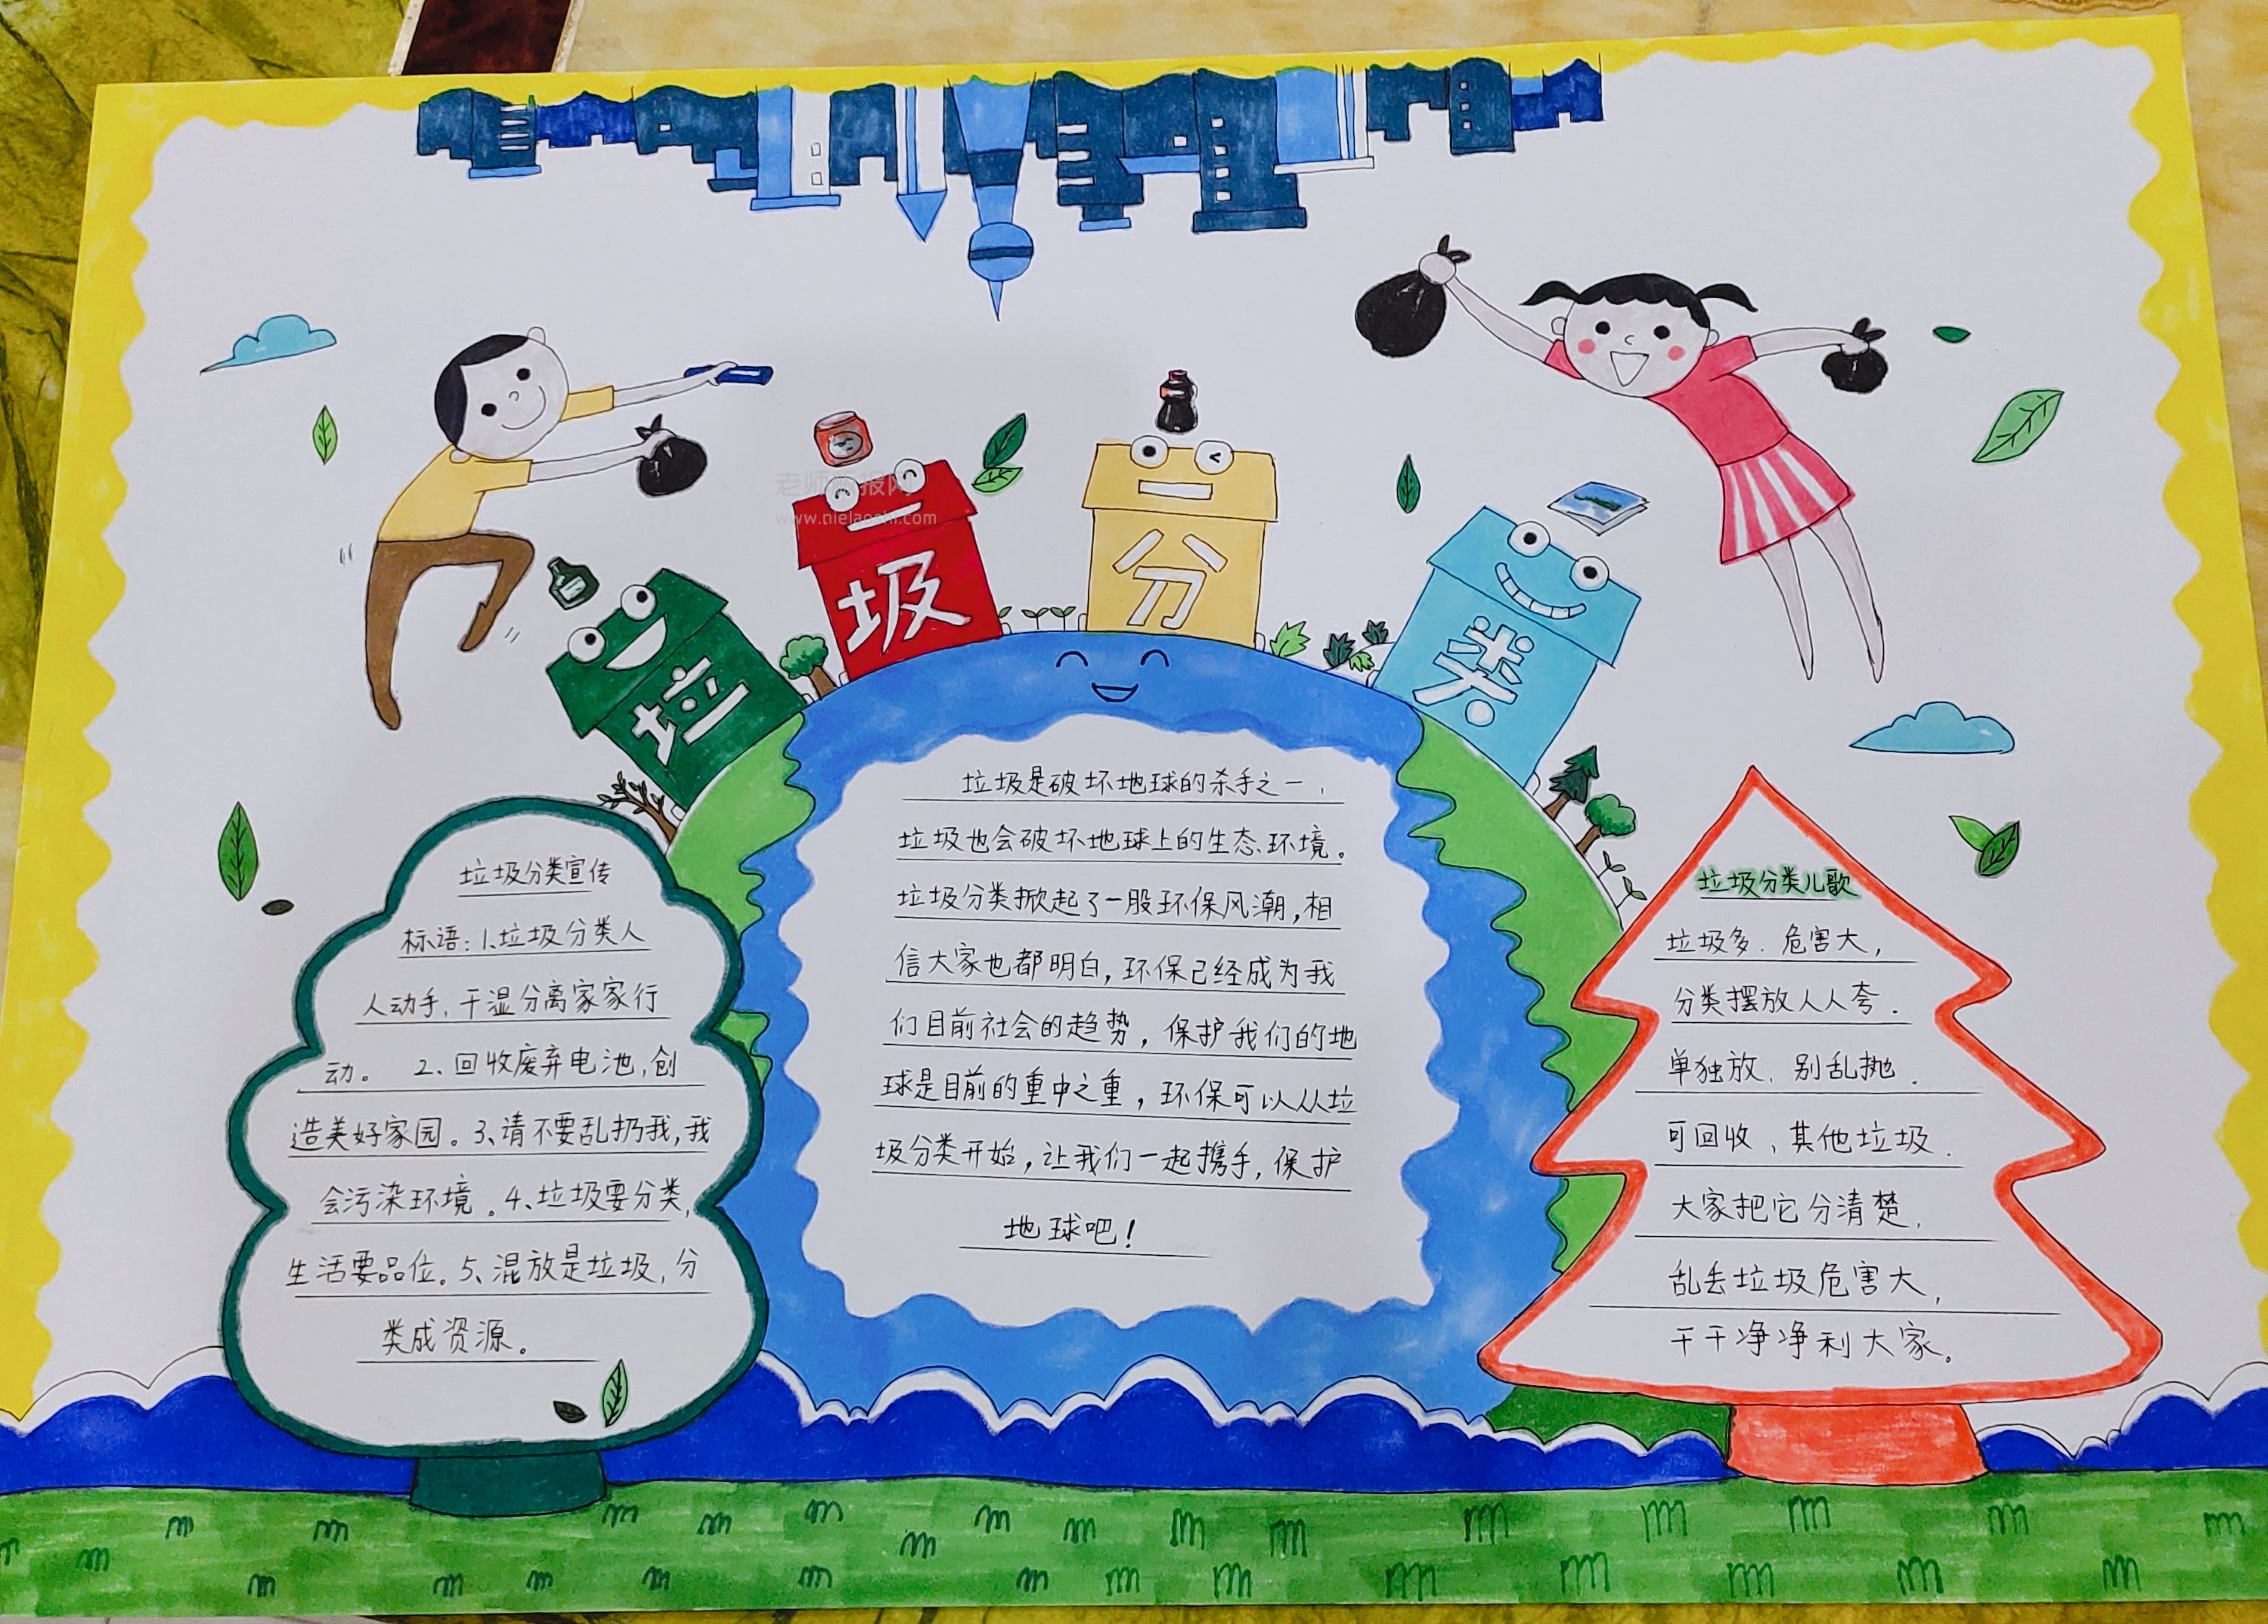 老师 报网
www.nielaoshi.com
垃
圾
分
类
垃圾分类宣传
标语:1、垃圾分类人
人动手,干湿分离家家行
动。 2、回收废弃电池,创
造美好家园。3、请不要乱扔我,我
会污染环境。4、垃圾要分类,
生活要品位。5、混放是垃圾,分
类成资源。
垃圾是破坏地球的杀手之一,
垃圾也会破坏地球上的生态环境。
垃圾分类掀起了一股环保风潮,相
信大家也都明白,环保已经成为我
们目前社会的趋势,保护我们的地
球是目前的重中之重,环保可以从垃
圾分类开始,让我们一起携手,保护
地球吧!
垃圾分类儿歌
垃圾多、危害大,
分类摆放人人夸.
单独放、别乱抛.
可回收、其他垃圾.
大家把它分清楚,
乱丢垃圾危害大,
干干净净利大家。